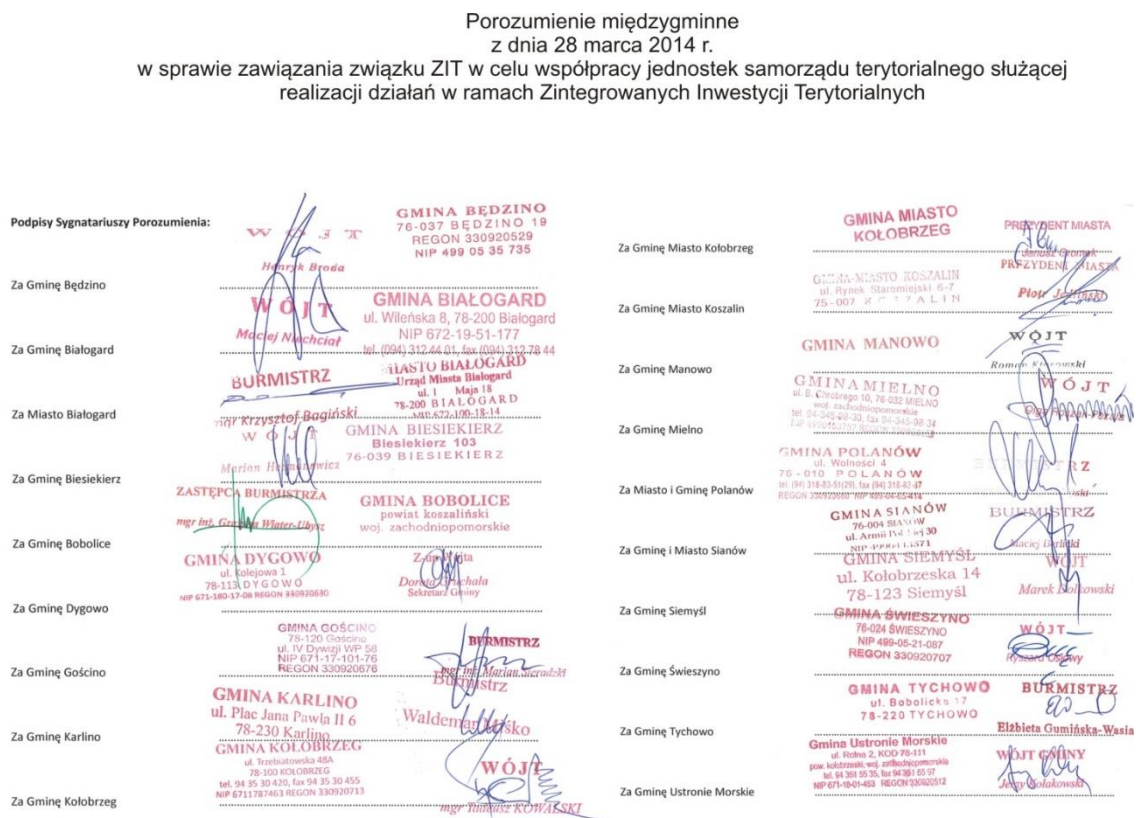 Porozumienie międzygminne
z dnia 28 marca 2014 r.
w sprawie zawiązania związku ZIT w celu współpracy jednostek samorządu terytorialnego służącej
realizacji działań w ramach Zintegrowanych Inwestycji Terytorialnych
Podpisy Sygnatariuszy Porozumienia:
WÓJT
Henryk Broda
GMINA BĘDZINO
76-037 BĘDZINO 19
REGON 330920529
NIP 499 05 35 735
Za Gminę Będzino
WÓJT
Maciej Niechciał
GMINA BIAŁOGARD
ul. Wileńska 8, 78-200 Białogard
NIP 672-19-51-177
tel. (094) 312 44 01, fax (094) 312 78 44
Za Gminę Białogard
BURMISTRZ
mgr Krzysztof Bagiński
MIASTO BIAŁOGARD
Urząd Miasta Białogard
ul. 1 Maja 18
78-200 BIAŁOGARD
Za Miasto Białogard
WÓJT
Marian
GMINA BIESIEKIERZ
Biesiekierz 103
76-039 BIESIEKIERZ
Za Gminę Biesiekierz
ZASTĘPCA BURMISTRZA
mgr inż.
GMINA BOBOLICE
powiat koszaliński
woj. zachodniopomorskie
Za Gminę Bobolice
GMINA DYGOWO
ul. Kolejowa 1
78-113 DYGOWO
NIP 671-180-17-08 REGON 330920630
Z up. Wójta
Dorota
Sekretarz Gminy
Za Gminę Dygowo
GMINA GOŚCINO
78-120 Gościno
ul. IV Dywizji WP 58
NIP 671-17-101-76
REGON 330920676
BURMISTRZ
mgr inż. Marian Sieradzki
Za Gminę Gościno
GMINA KARLINO
ul. Plac Jana Pawła II 6
78-230 Karlino
Burmistrz
Waldemar Miśko
Za Gminę Karlino
GMINA KOŁOBRZEG
ul. Trzebiatowska 48A
78-100 KOŁOBRZEG
tel. 94 35 30 420, fax 94 35 30 455
NIP 6711787463 REGON 330920713
WÓJT
mgr Tadeusz KOWALSKI
Za Gminę Kołobrzeg
GMINA MIASTO
KOŁOBRZEG
PREZYDENT MIASTA
Janusz Gromek
Za Gminę Miasto Kołobrzeg
GMINA-MIASTO KOSZALIN
ul. Rynek Staromiejski 6-7
75-007 KOSZALIN
PREZYDENT MIASTA
Piotr Jedliński
Za Gminę Miasto Koszalin
GMINA MANOWO
WÓJT
Roman
Za Gminę Manowo
GMINA MIELNO
ul. B. Chrobrego 10, 76-032 MIELNO
woj. zachodniopomorskie
tel. 94-345-98-30, fax 94-345-98-34
WÓJT
Olga
Za Gminę Mielno
GMINA POLANÓW
ul. Wolności 4
76-010 POLANÓW
BURMISTRZ
Za Miasto i Gminę Polanów
GMINA SIANÓW
76-004 SIANÓW
ul. Armii Polskiej 30
BURMISTRZ
Maciej Berlicki
Za Gminę i Miasto Sianów
GMINA SIEMYŚL
ul. Kołobrzeska 14
78-123 Siemyśl
WÓJT
Marek Dołkowski
Za Gminę Siemyśl
GMINA ŚWIESZYNO
76-024 ŚWIESZYNO
NIP 499-05-21-087
REGON 330920707
WÓJT
Ryszard Osiowy
Za Gminę Świeszyno
GMINA TYCHOWO
ul. Bobolicka 17
78-220 TYCHOWO
BURMISTRZ
Elżbieta Gumińska-Wasia
Za Gminę Tychowo
Gmina Ustronie Morskie
ul. Rolna 2, KOD 78-111
pow. kołobrzeski, woj. zachodniopomorskie
tel. 94 351 55 35, fax 94 351 55 97
NIP 671-18-01-453 REGON 330920512
WÓJT GMINY
Jerzy Kołakowski
Za Gminę Ustronie Morskie